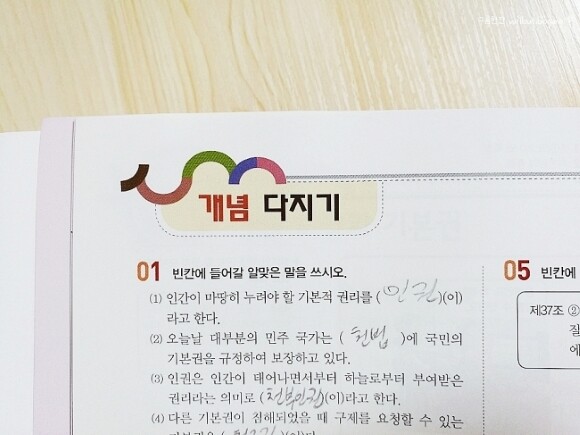 개념 다지기
01 빈칸에 들어갈 알맞은 말을 쓰시오.
(1) 인간이 마땅히 누려야 할 기본적 권리를 (인권)(이)
라고 한다.
(2) 오늘날 대부분의 민주 국가는 ( 헌법 )에 국민의
기본권을 규정하여 보장하고 있다.
(3) 인권은 인간이 태어나면서부터 하늘로부터 부여받은
권리라는 의미로 (천부인권)(이)라고 한다.
(4) 다른 기본권이 침해되었을 때 구제를 요청할 수 있는
05 빈칸에
제37조 ②
질
에